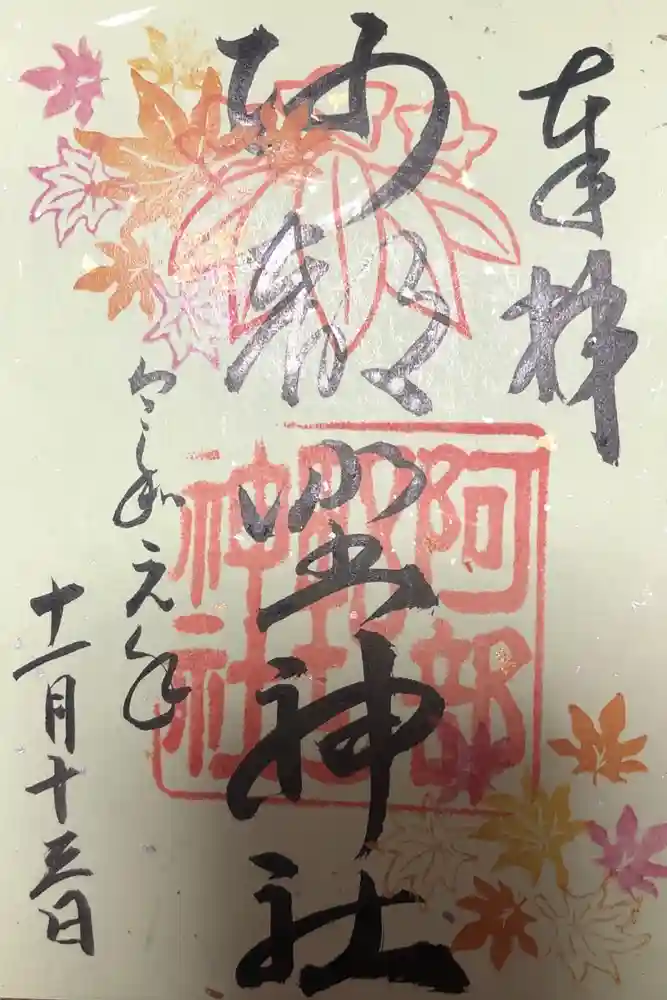 奉拝
阿部埜神社
令和元年
十一月十五日
阿部
神社